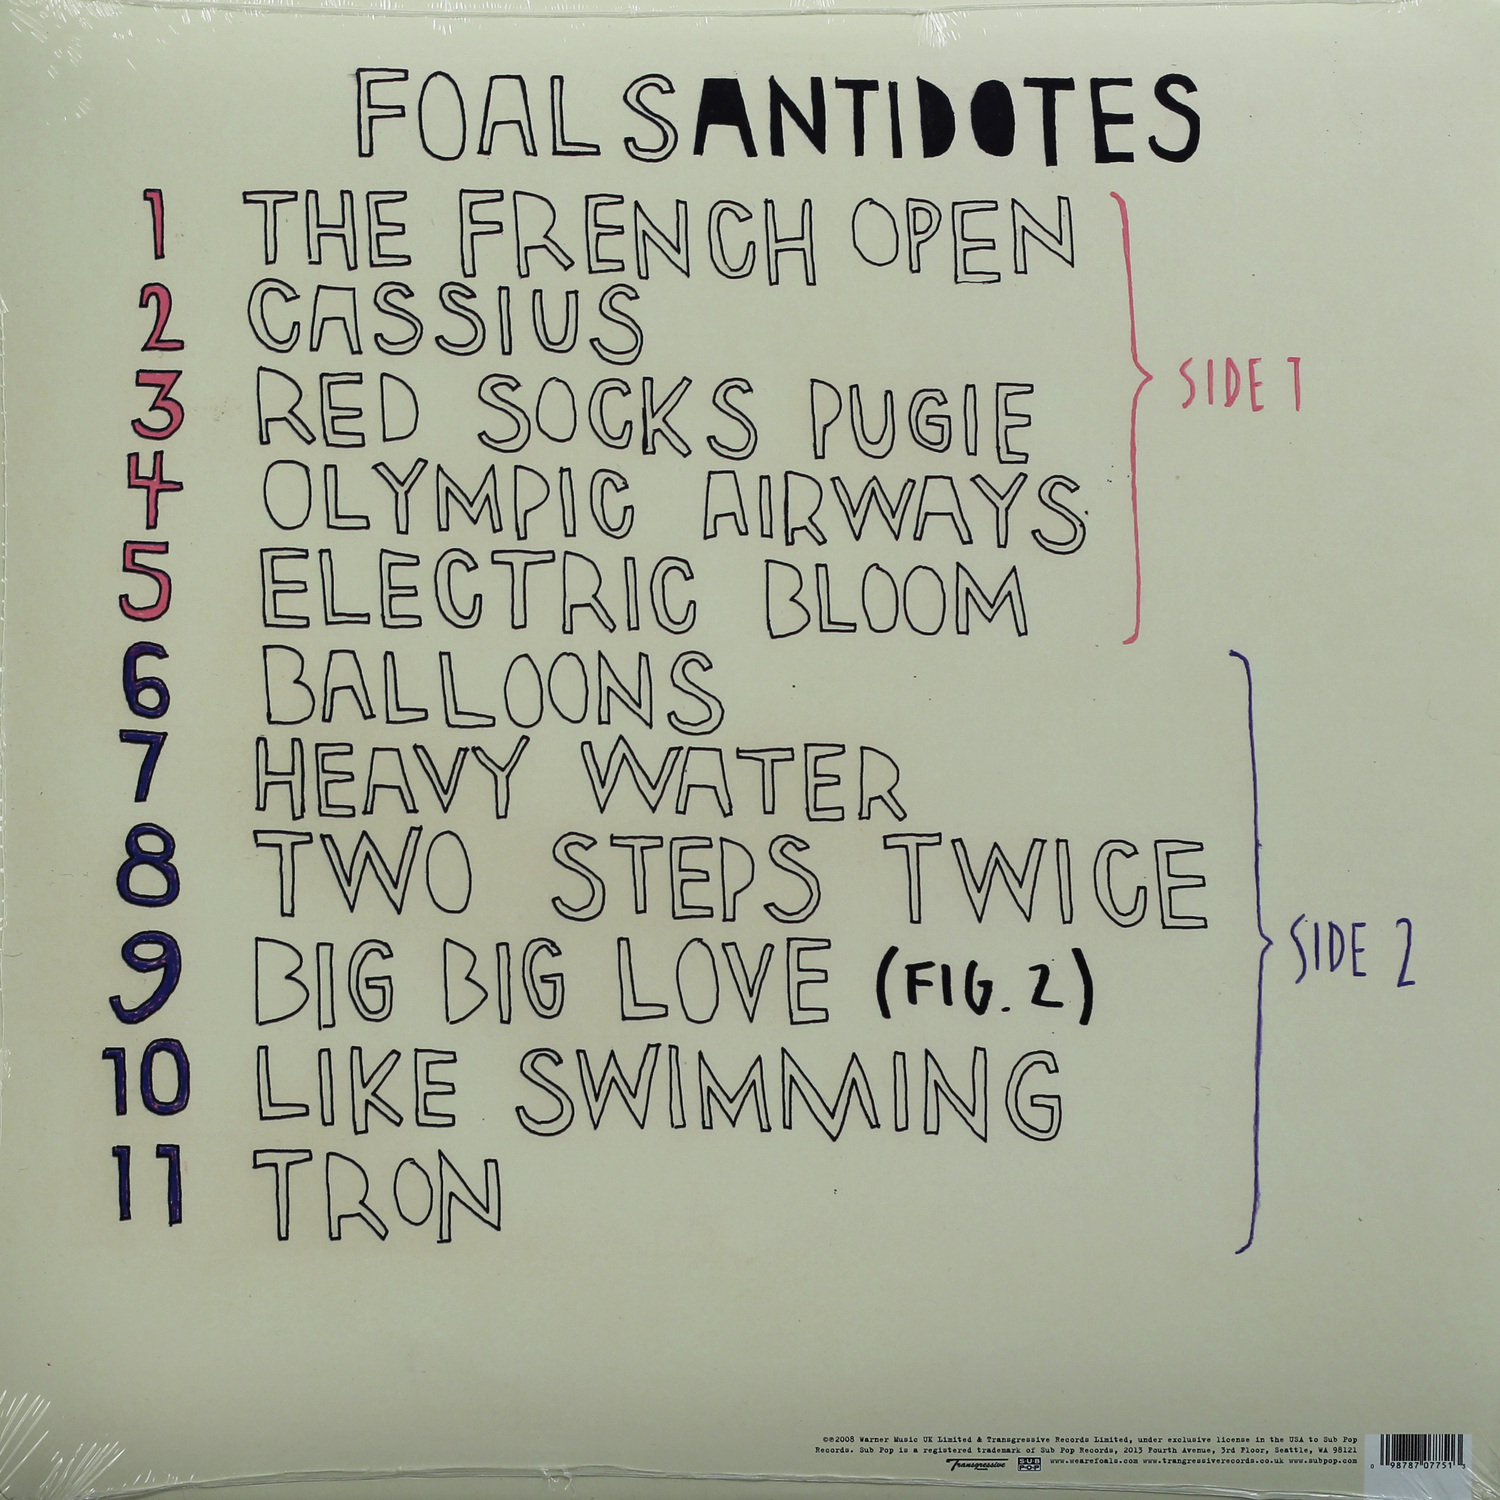 FOALS ANTIDOTES
1 THE FRENCH OPEN
2 CASSIUS
3 RED SOCKS PUGIE
SIDE 1
4 OLYMPIC AIRWAYS
5 ELECTRIC BLOOM
6 BALLOONS
7 HEAVY WATER
8 TWO STEPS TWICE
9 BIG BIG LOVE (FIG. 2)
SIDE 2
10 LIKE SWIMMING
11 TRON
©℗2008 Warner Music UK Limited & Transgressive Records Limited, under exclusive license in the USA to Sub Pop
Records. Sub Pop is a registered trademark of Sub Pop Records, 2013 Fourth Avenue, 3rd Floor, Seattle, WA 98121
Transgressive SUB POP www.wearefoals.com www.trangressiverecords.co.uk www.subpop.com
0 98787 07751